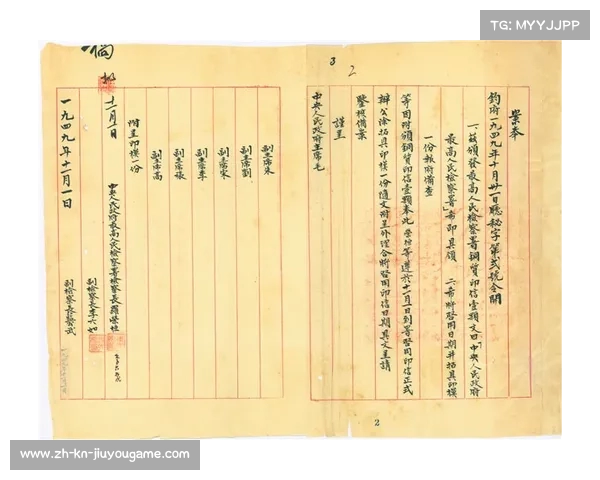 TG: MYYJJPP
3
2
案奉
鈞府一九四九年十月廿一日廳秘字第弍號令開
一茲頒發最高人民檢察署銅質印信壹顆文曰「中央人民政府
最高人民檢察署」希即具領 二希將啓用日期并拓具印模
一份報府備查
等因附頒銅質印信壹顆奉此 遵於十一月一日到署啓用印信正式
辦公除拓具印模一份隨文附呈外理合將啓用印信日期具文呈請
鑒核備案
謹呈
中央人民政府主席毛
副主席朱
副主席劉
副主席宋
副主席李
副主席張
副主席高
附呈印模一份
中央人民政府最高人民檢察署檢察長羅榮桓
副檢察長李六如
副檢察長藍公武
十一月一日
一九四九年十一月一日
2
www.zh-kn-jiuyougame.com